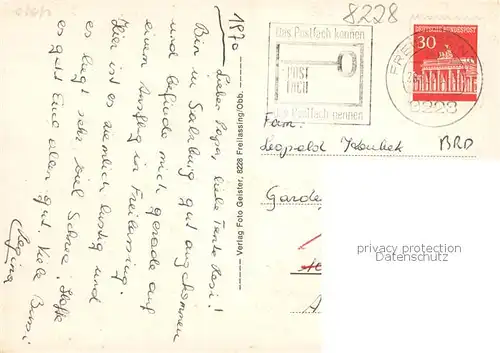 8228
1970
Lieber Papa, liebe Tante Resi!
Bin in Salzburg gut angekommen
und befinde mich gerade auf
einem Ausflug in Freilassing.
Hier ist es ziemlich lustig und
es liegt sehr viel Schnee. Hoffe
es geht Euch allen gut. Viele Bussi
Regina
Verlag Foto Geistler, 8228 Freilassing/Obb.
Das Postfach kennen
POST
FACH
Postfach nennen
DEUTSCHE BUNDESPOST
30
8228
Fam.
Leopold
BRD
privacy protection
ansichtskarten-center.de